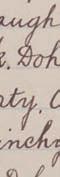 augh
k. Doh
aty. C
inchy